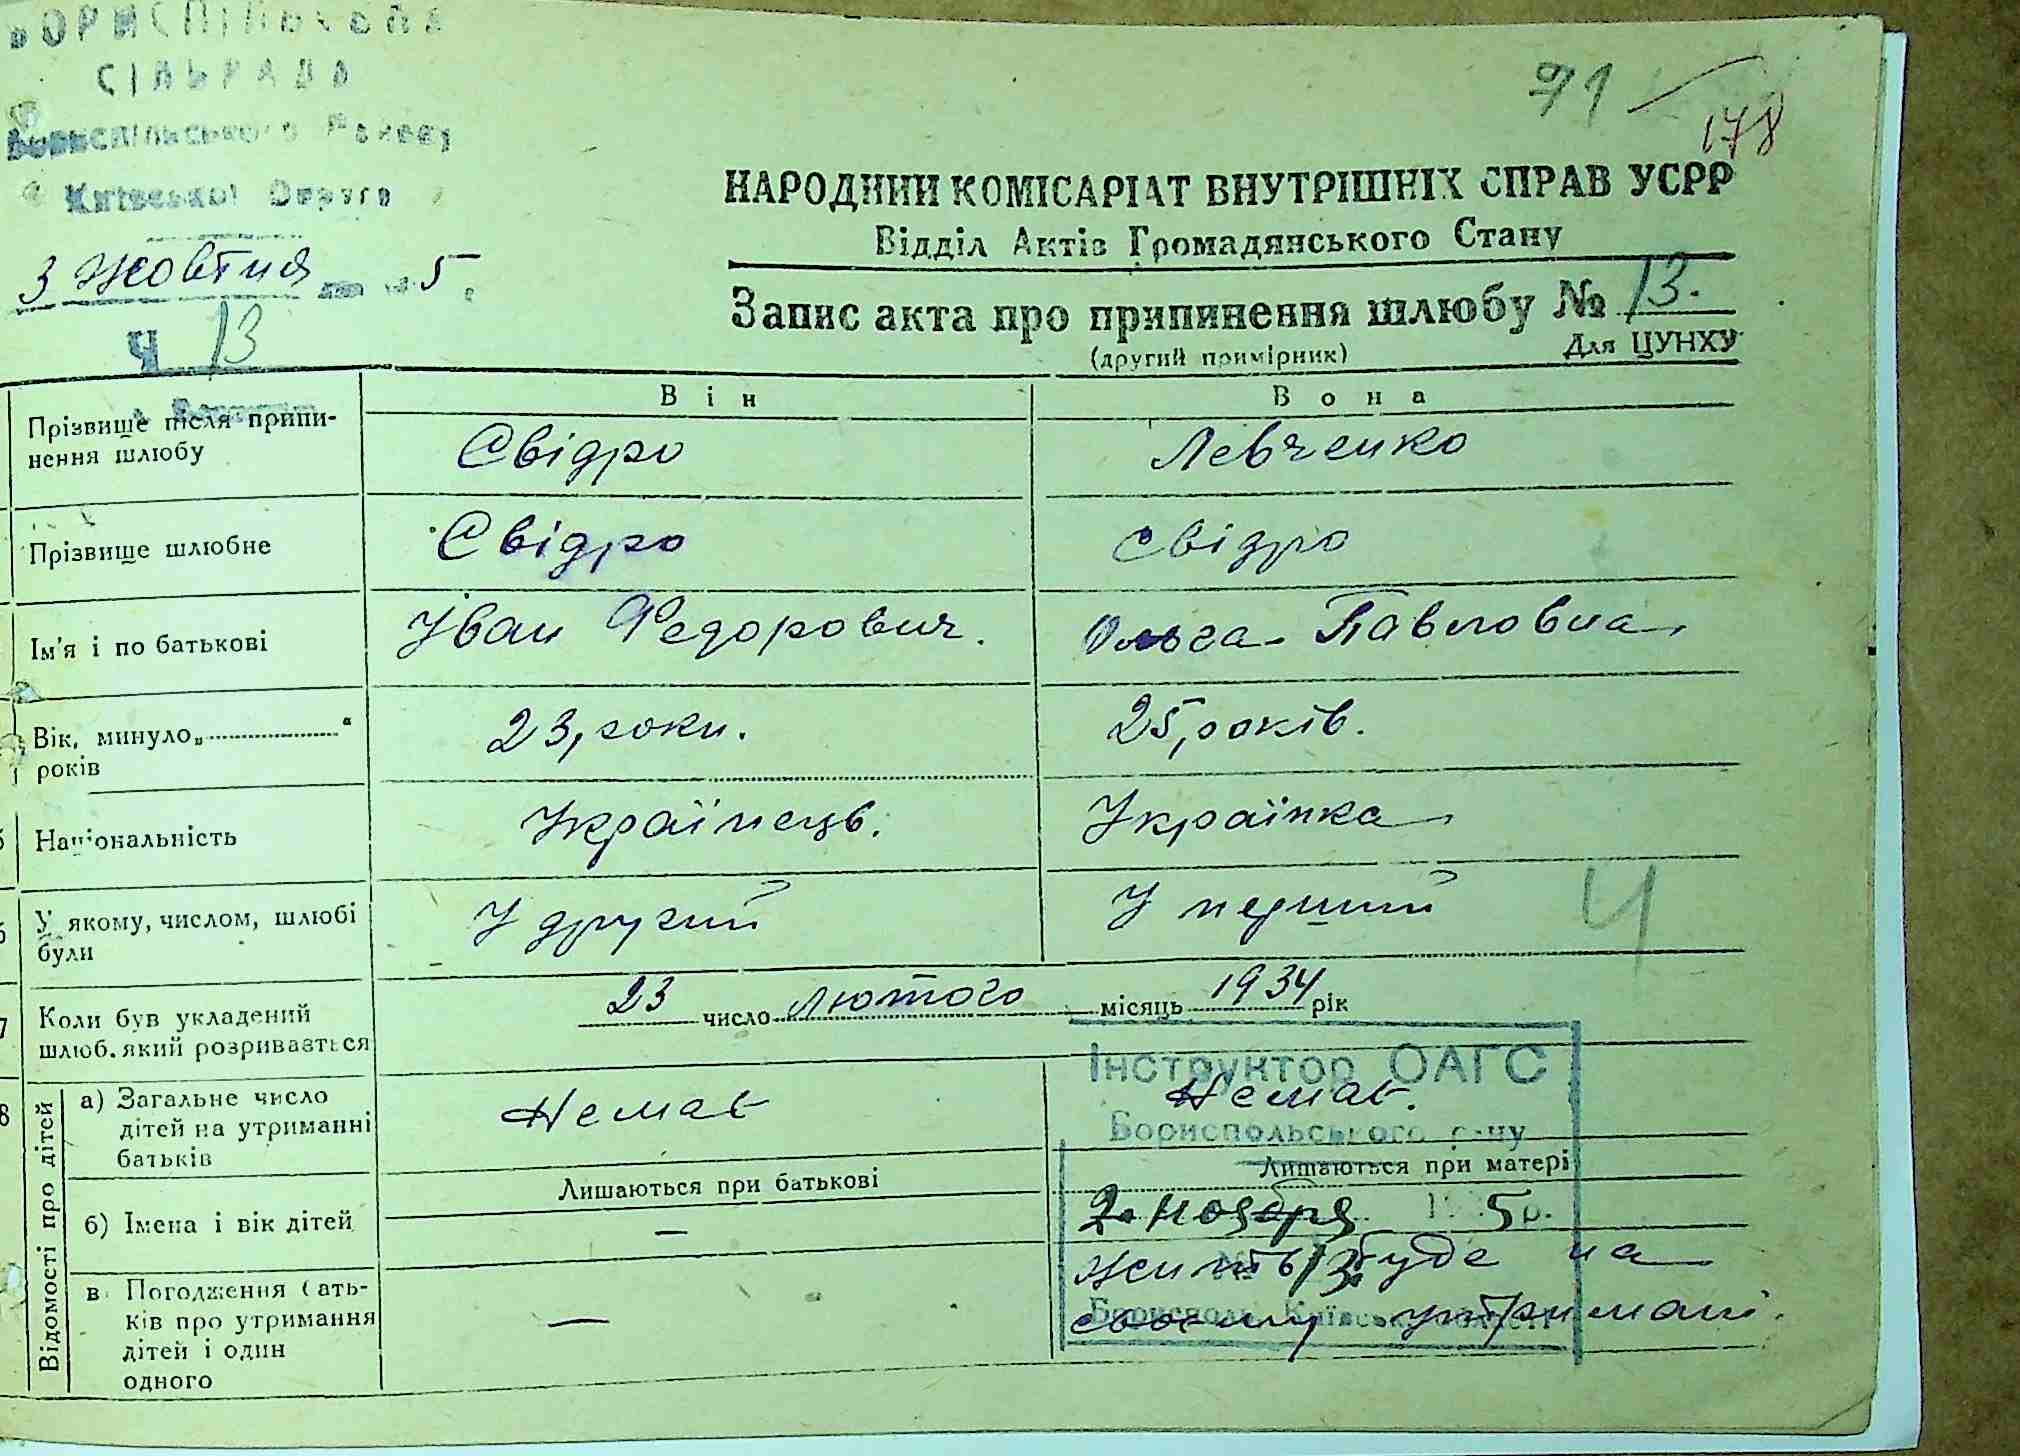 БОРИСПІЛЬСЬКА
СІЛЬРАДА
Бориспільського Району
Київської Округи
3 жовтня 5
Ч 13
71
178
НАРОДНИЙ КОМІСАРІАТ ВНУТРІШНІХ СПРАВ УСРР
Відділ Актів Громадянського Стану
Запис акта про припинення шлюбу № 13.
(другий примірник) Для ЦУНХУ
Він Вона
Прізвище після припи-
нення шлюбу Свідро Левченко
Прізвище шлюбне Свідро Свідро
Ім'я і по батькові Іван Федорович. Ольга Павловна
Вік, минуло „ “
років 23, роки. 25, років.
Національність Українець. Українка
У якому, числом, шлюбі
були У другий У перший
Ч
Коли був укладений
шлюб, який розривається 23 число лютого місяць 1934 рік
7
8
Відомості про дітей
а) Загальне число
дітей на утриманні
батьків Немає Немає.
Інструктор ОАГС
Бориспольського р-ну
Лишаються при батькові Лишаються при матері
б) Імена і вік дітей —
2 ноября 5 р.
№ 13
в Погодження бать-
ків про утримання
дітей і один
одного —
жить буде на
своєму утримані.